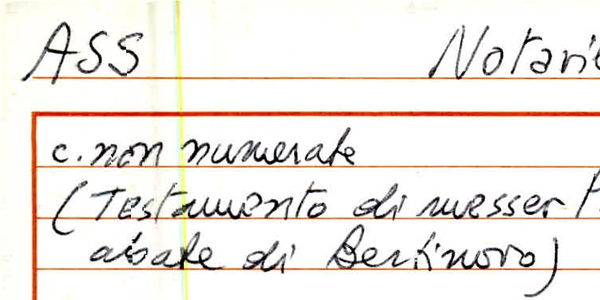 ASS Notarile
c. non numerate
(Testamento di messer P
abate di Bertinoro)